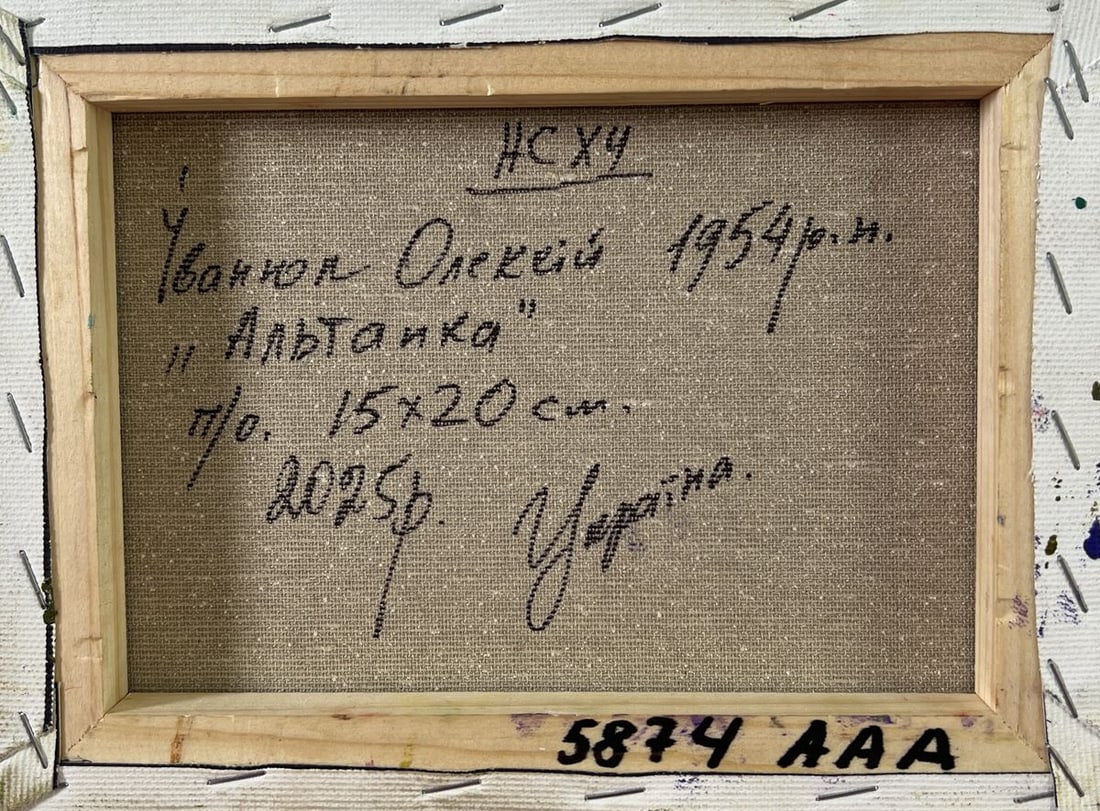 НСХУ
Іванюк Олексій 1954р.н.
„Альтанка"
п/о. 15х20 см.
2025р. Україна.
5874 ААА